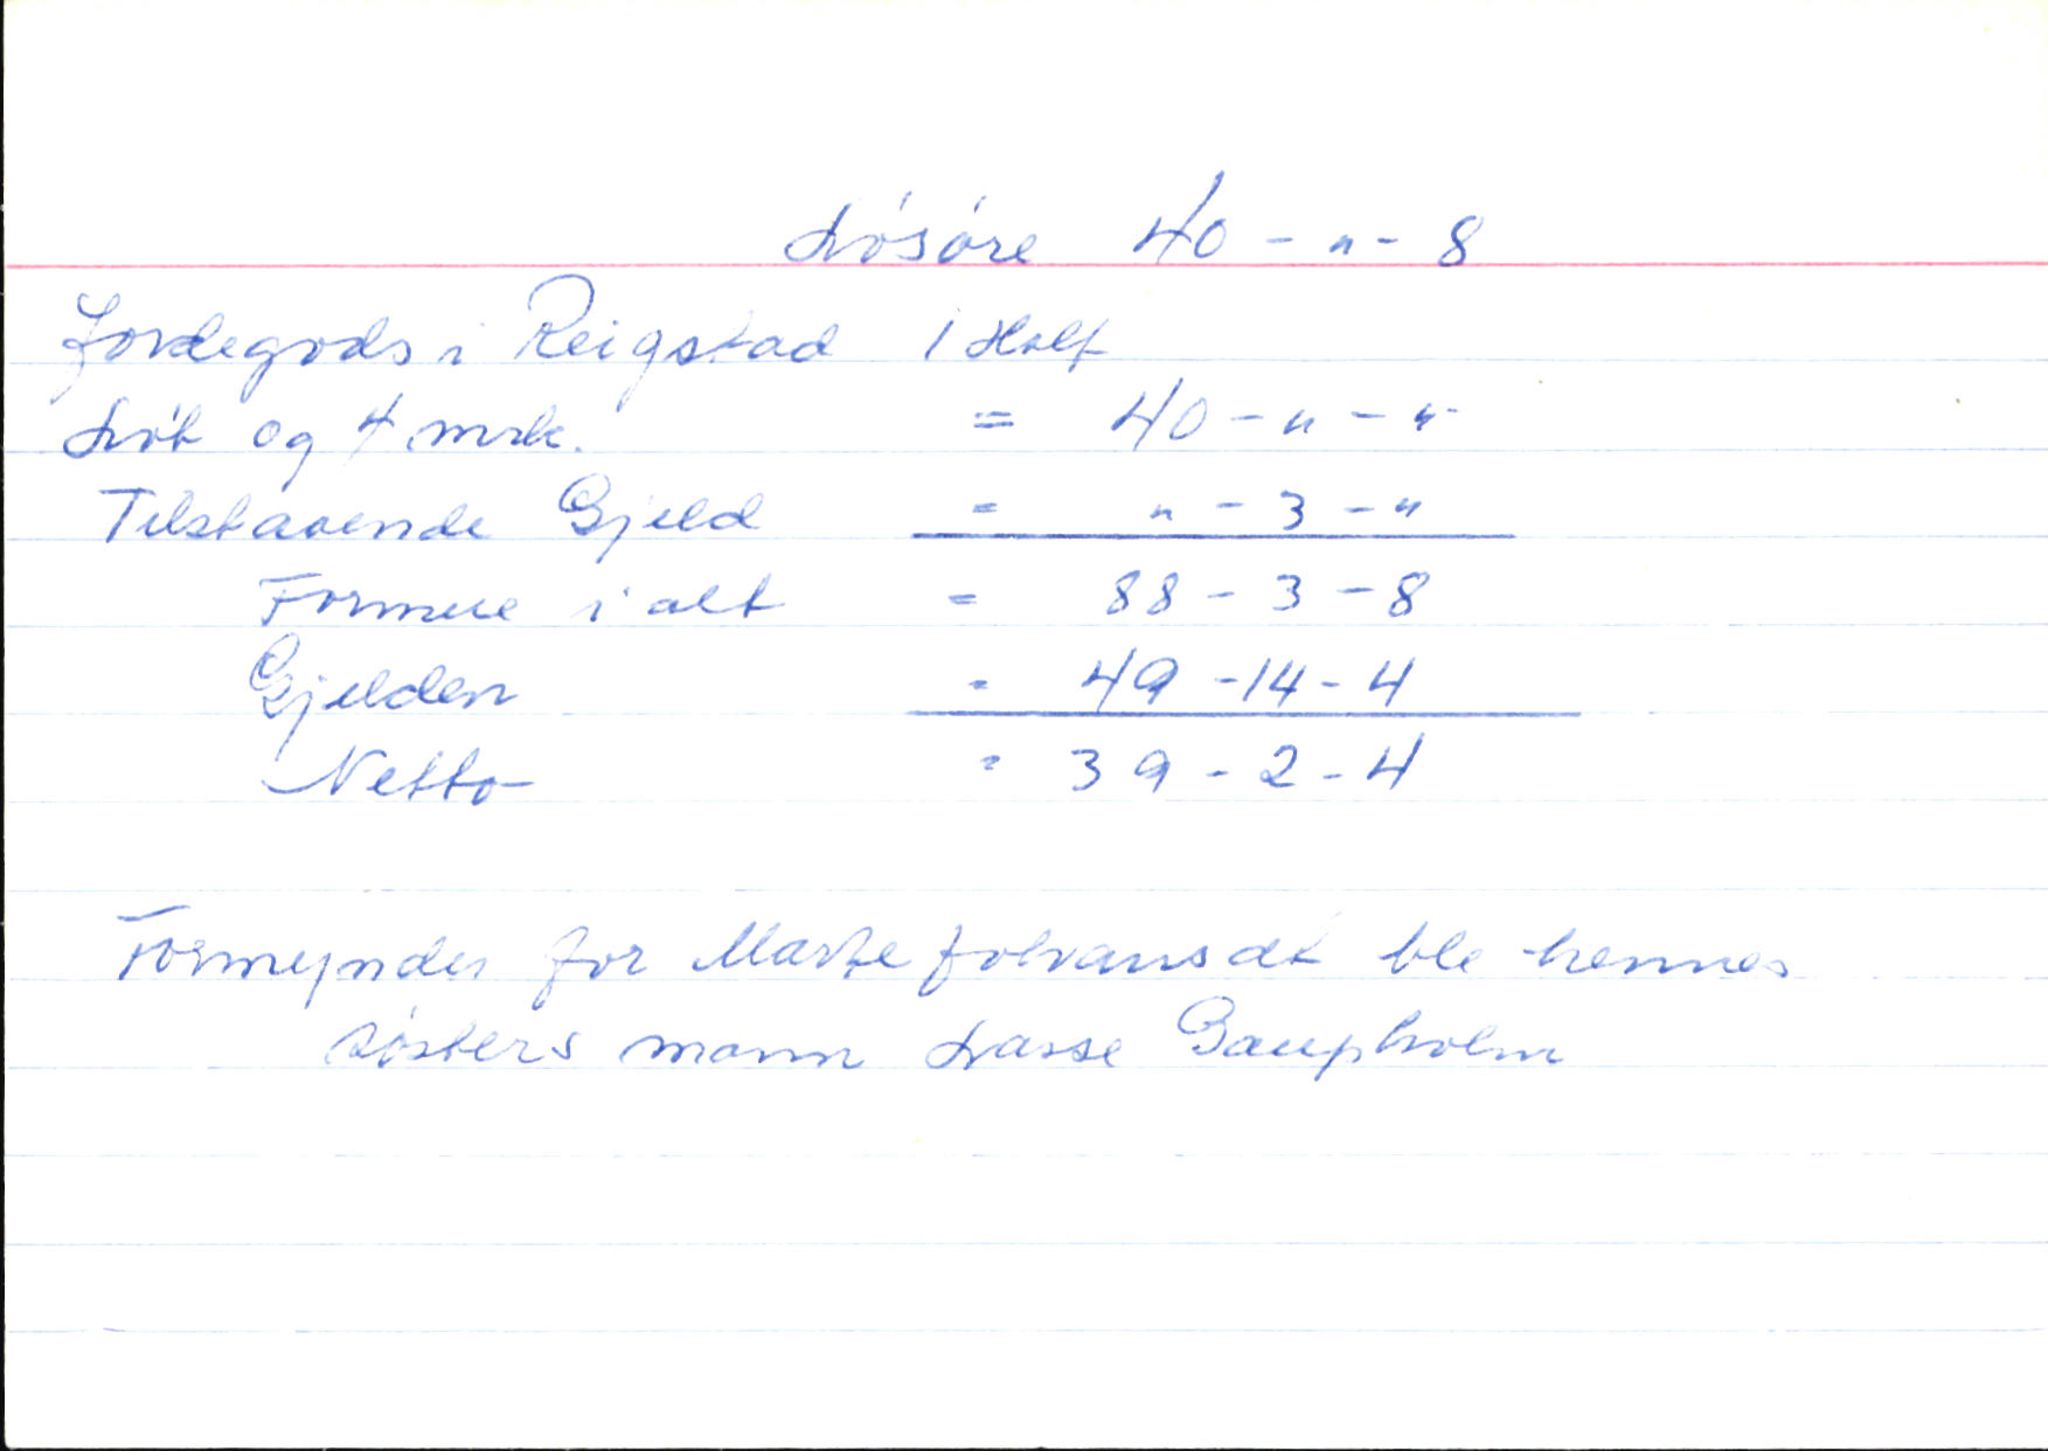 Lósóre 40 - " - 8
Jordegods i Reigstad 1 Half
Lób og 4 mrk. = 40 - " - "
Tilstaaende Gjeld = " - 3 - "
Formue i alt = 88 - 3 - 8
Gjelden = 49 - 14 - 4
Netto = 39 - 2 - 4
Formynder for Marte Johansdt ble hennes
sósters mann Lasse Gaupholm